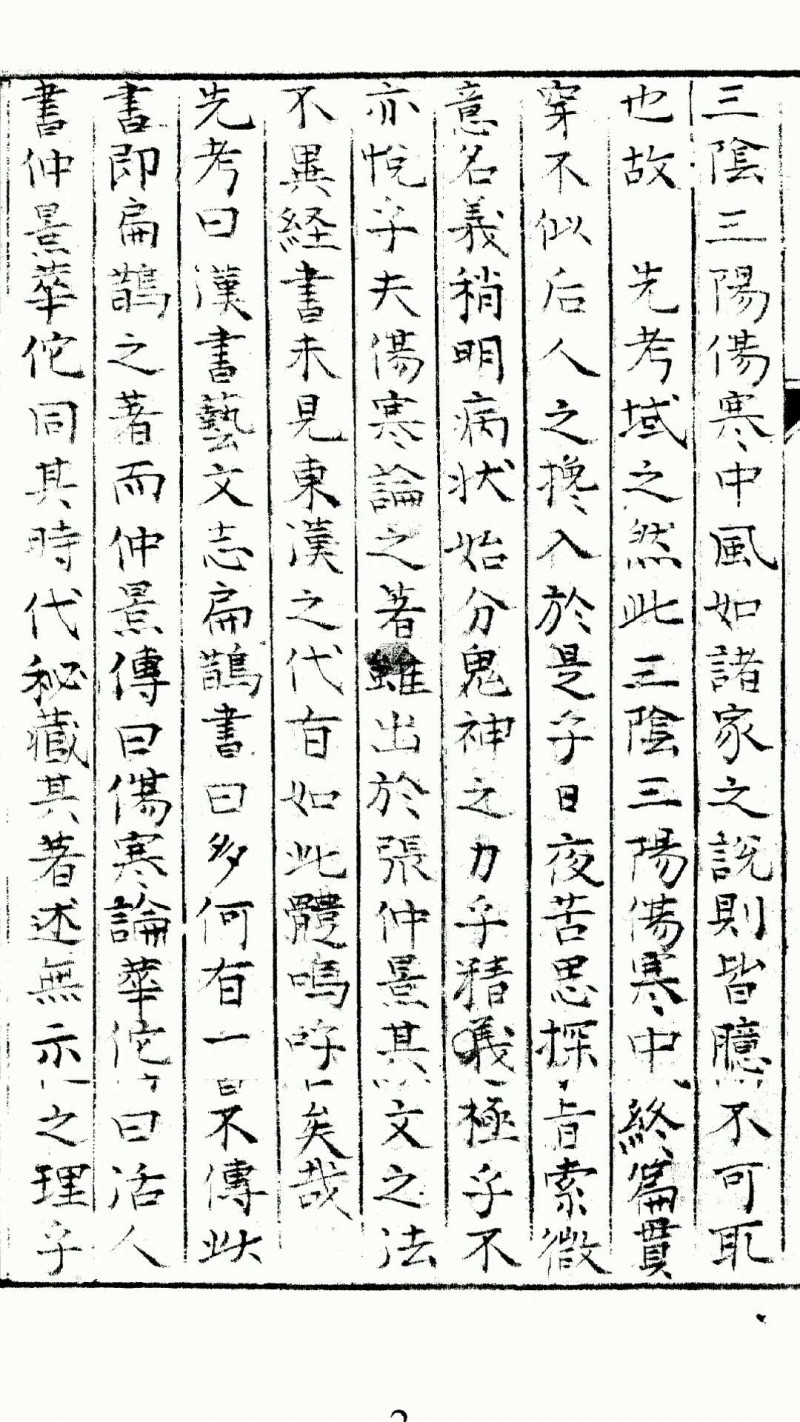 三陰三陽傷寒中風如諸家之說則皆臆不可取
也故　先考域之然此三陰三陽傷寒中終篇貫
穿不似后人之攙入於是乎日夜苦思探旨索微
意名義稍明病状始分鬼神之力乎精義極乎不
亦悅乎夫傷寒論之著雖出於張仲景其文之法
不異経書未見東漢之代有如此體嗚呼矣哉
先考曰漢書藝文志扁鵲書曰多何有一不傳此
書即扁鵲之著而仲景傳曰傷寒論華佗曰活人
書仲景華佗同其時代秘藏其著述無示之理乎
2